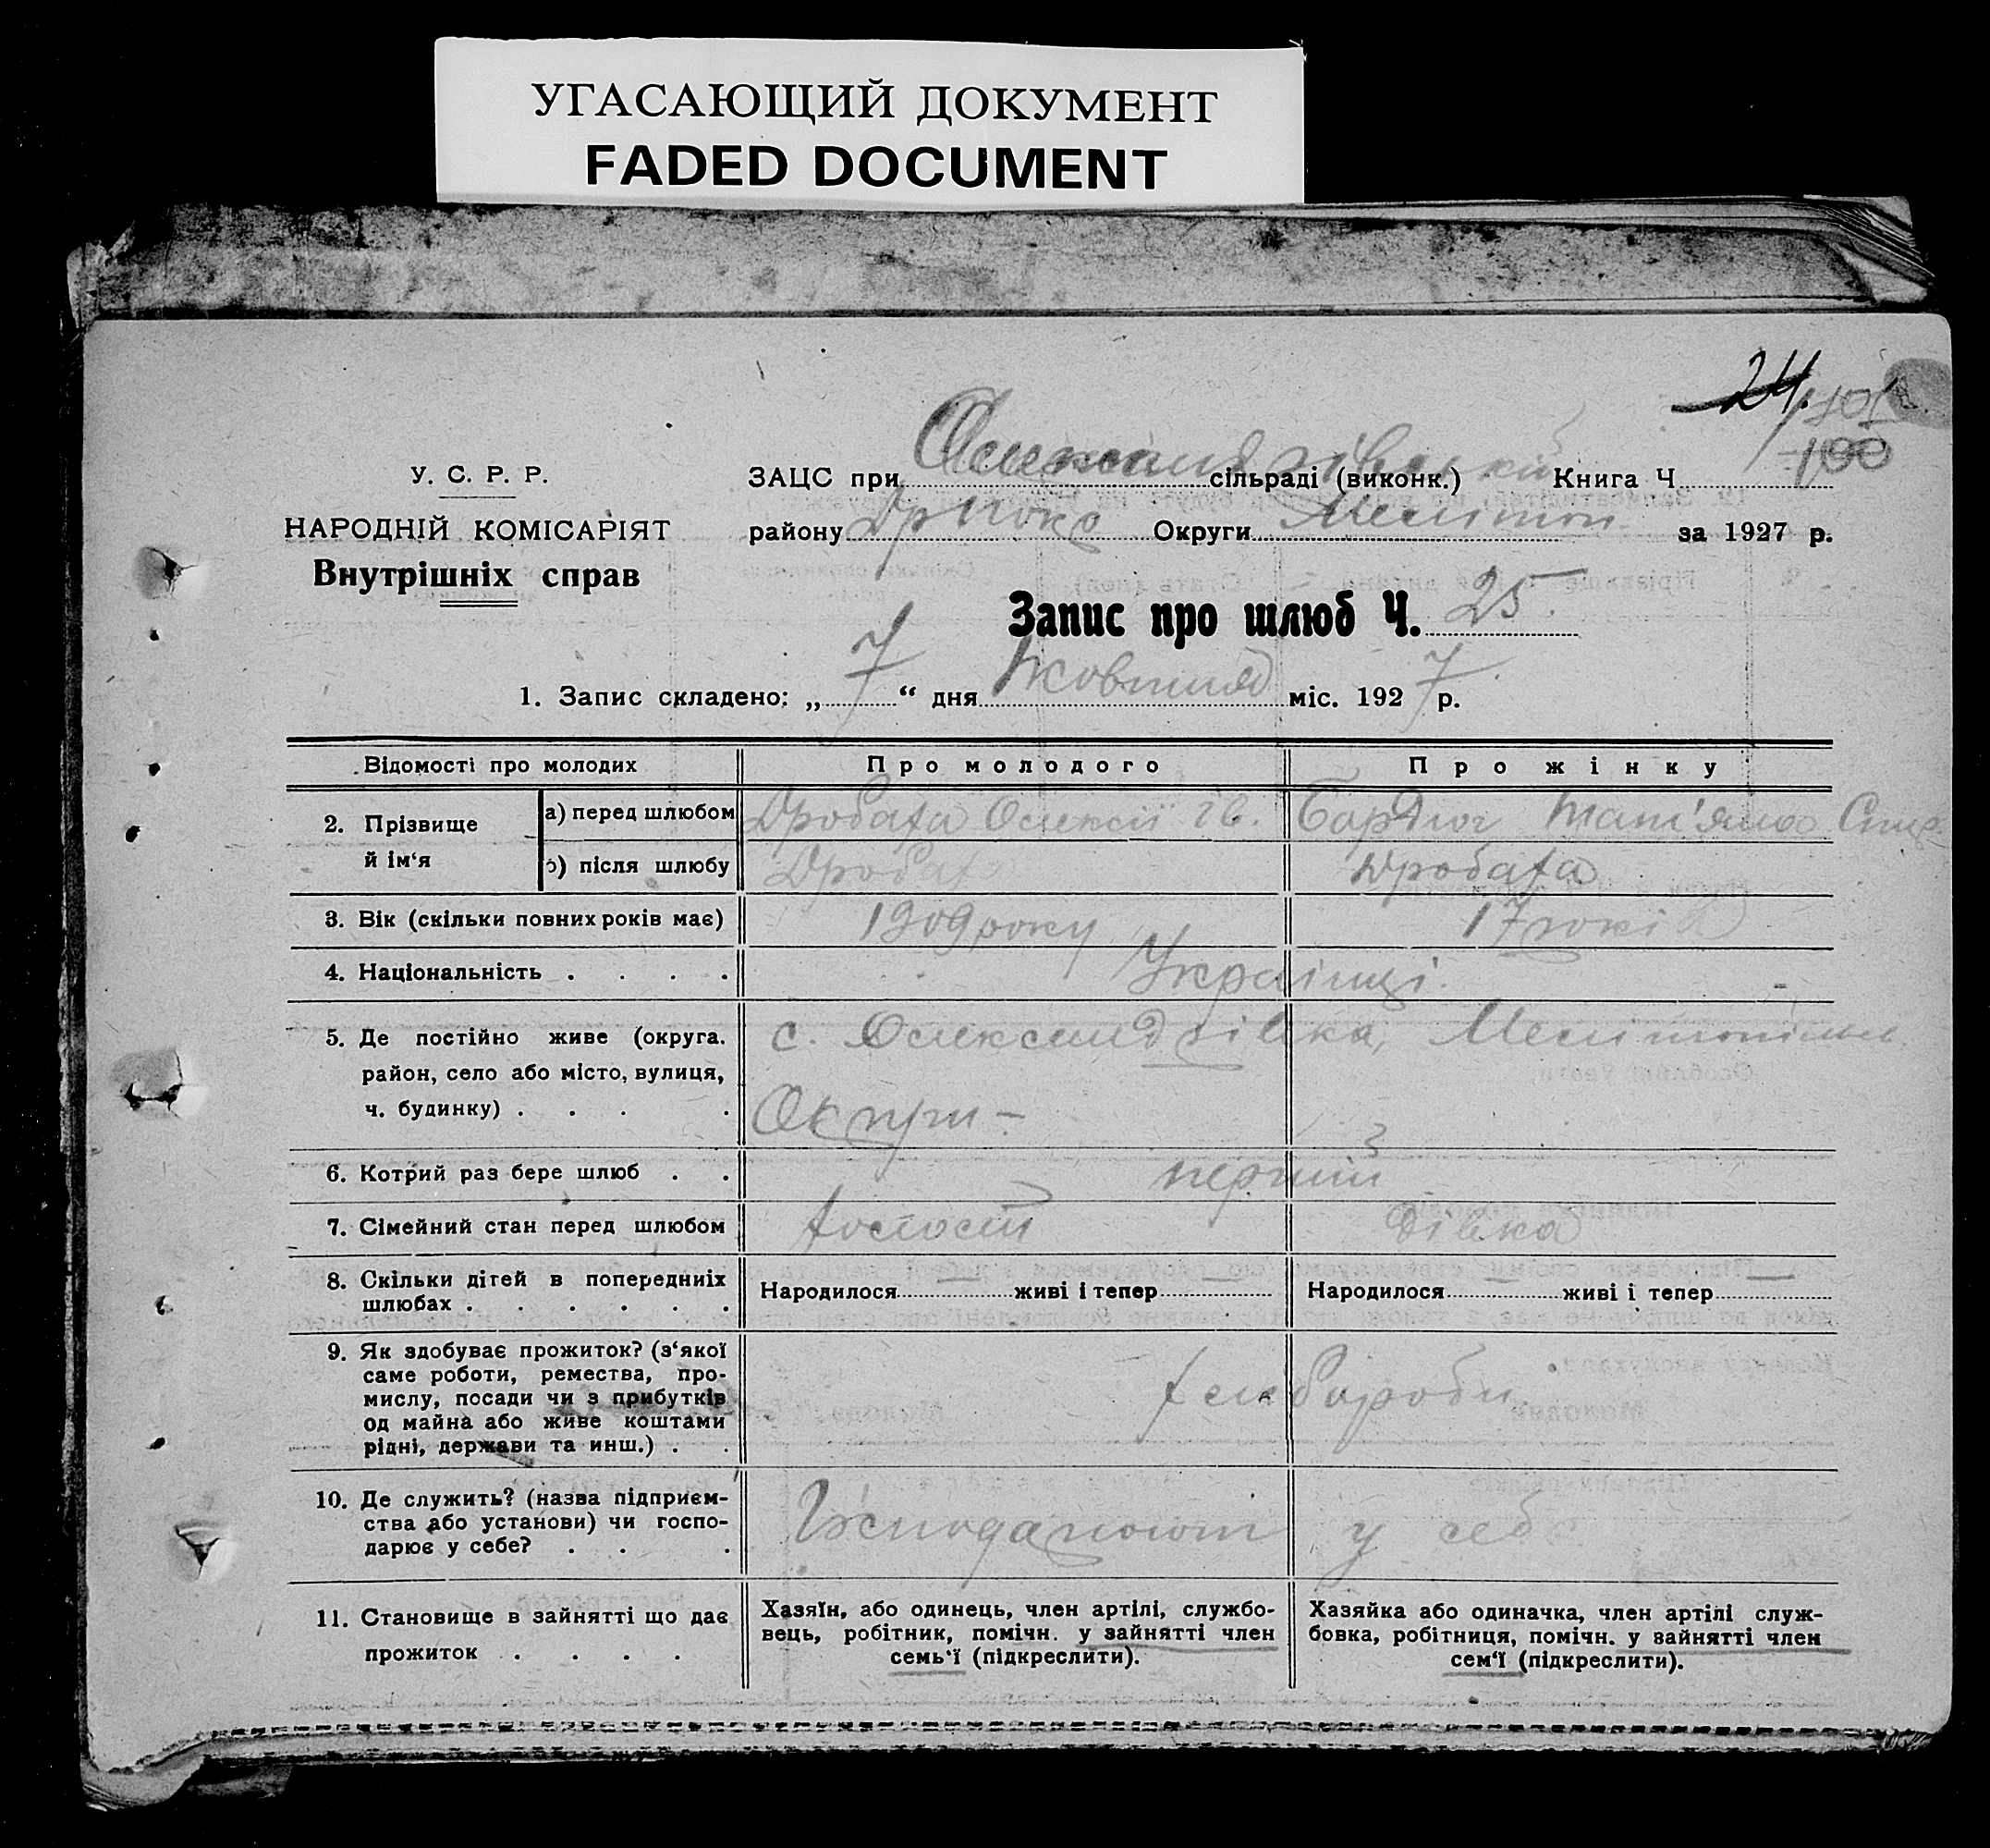 УГАСАЮЩИЙ ДОКУМЕНТ
FADED DOCUMENT
24.
100
У. С. Р. Р.
НАРОДНІЙ КОМІСАРІЯТ
Внутрішніх справ
ЗАЦС при Олександрівській сільраді (виконк.) Книга Ч
району Округи Мелітоп. за 1927 р.
Запис про шлюб Ч. 25.
1. Запис складено: „ 7 “ дня Жовтня міс. 192 7 р.
Відомості про молодих Про молодого Про жінку
2. Прізвище й ім‘я
а) перед шлюбом Дробата Олексій Ів. Тат'яна
б) після шлюбу Дробат Дробата
3. Вік (скільки повних років має) 1909 року 17 років
4. Національність . . . . Українці.
5. Де постійно живе (округа. с. Олександрівка,
район, село або місто, вулиця,
ч. будинку) . . . . Округи –
6. Котрий раз бере шлюб . . перший
7. Сімейний стан перед шлюбом холостий дівка
8. Скільки дітей в попередніх
шлюбах . . . . . . Народилося живі і тепер Народилося живі і тепер
9. Як здобуває прожиток? (з‘якої
саме роботи, ремества, про-
мислу, посади чи з прибутків
од майна або живе коштами
рідні, держави та инш.) . . хлібороби
10. Де служить? (назва підприєм-
ства або установи) чи госпо-
дарює у себе? . . . у себе
11. Становище в зайнятті що дає
прожиток . . . .
Хазяїн, або одинець, член артілі, службо-
вець, робітник, помічн. у зайнятті член
семь‘ї (підкреслити).
Хазяйка або одиначка, член артілі служ-
бовка, робітниця, помічн. у зайнятті член
сем‘ї (підкреслити).